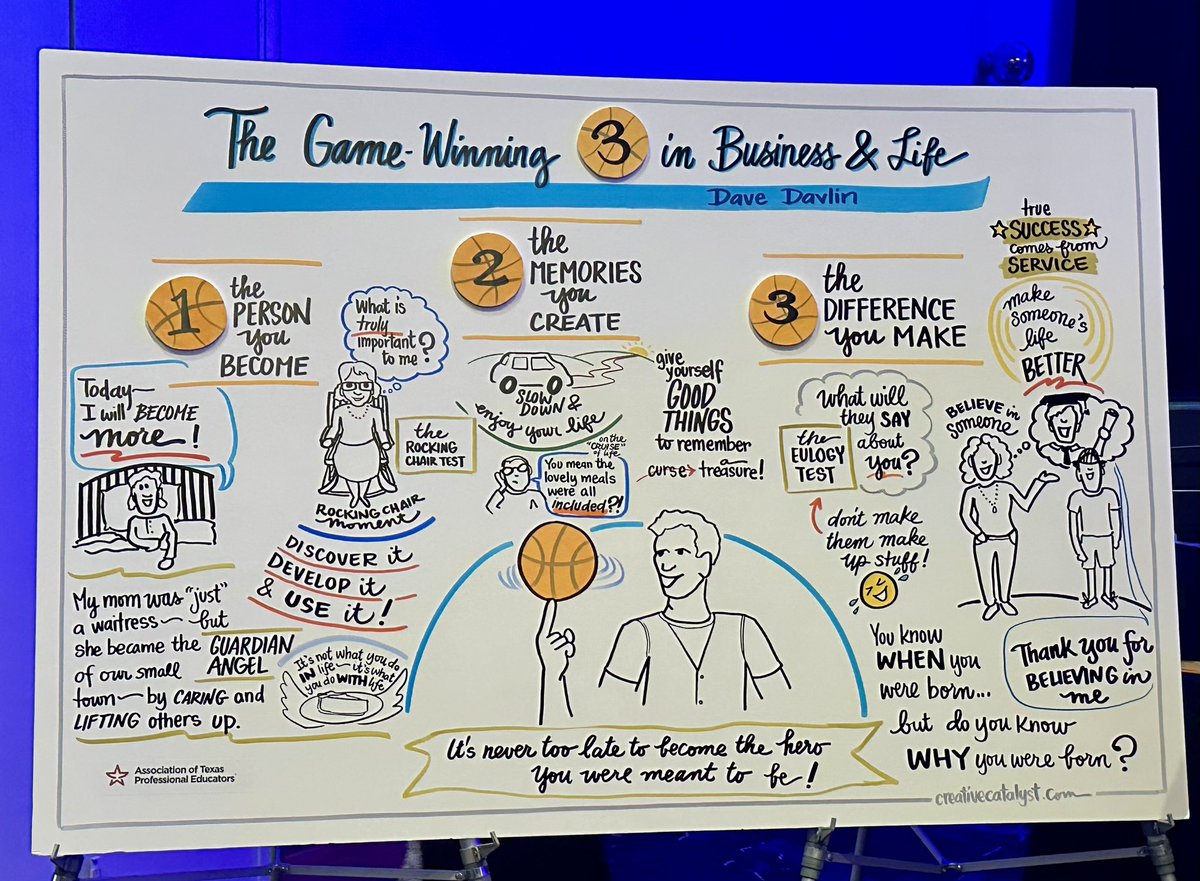 The Game-Winning 3 in Business & Life
Dave Davlin
1
the
PERSON
you
BECOME
Today—
I will BECOME
more!
What is
truly
important
to me?
the
ROCKING
CHAIR TEST
ROCKING CHAIR
moment
DISCOVER it
DEVELOP it
& USE it!
My mom was "just"
a waitress — but
she became the GUARDIAN
ANGEL
of our small
town — by CARING and
LIFTING others up.
It's not what you do
IN life — it's what
you do WITH life
2
the
MEMORIES
you
CREATE
SLOW
DOWN &
enjoy your life
give
yourself
GOOD
THINGS
to remember
curse > a treasure!
on the
"CRUISE"
of life
You mean the
lovely meals
were all
included?!
3
the
DIFFERENCE
you MAKE
What will
they SAY
about
you?
the
EULOGY
TEST
don't make
them make
up stuff!
true
SUCCESS
comes from
SERVICE
make
someone's
life
BETTER
BELIEVE in
someone
Thank you for
BELIEVING in
me
You know
WHEN you
were born...
but do you know
WHY you were born?
It's never too late to become the hero
you were meant to be!
Association of Texas
Professional Educators
creativecatalyst.com